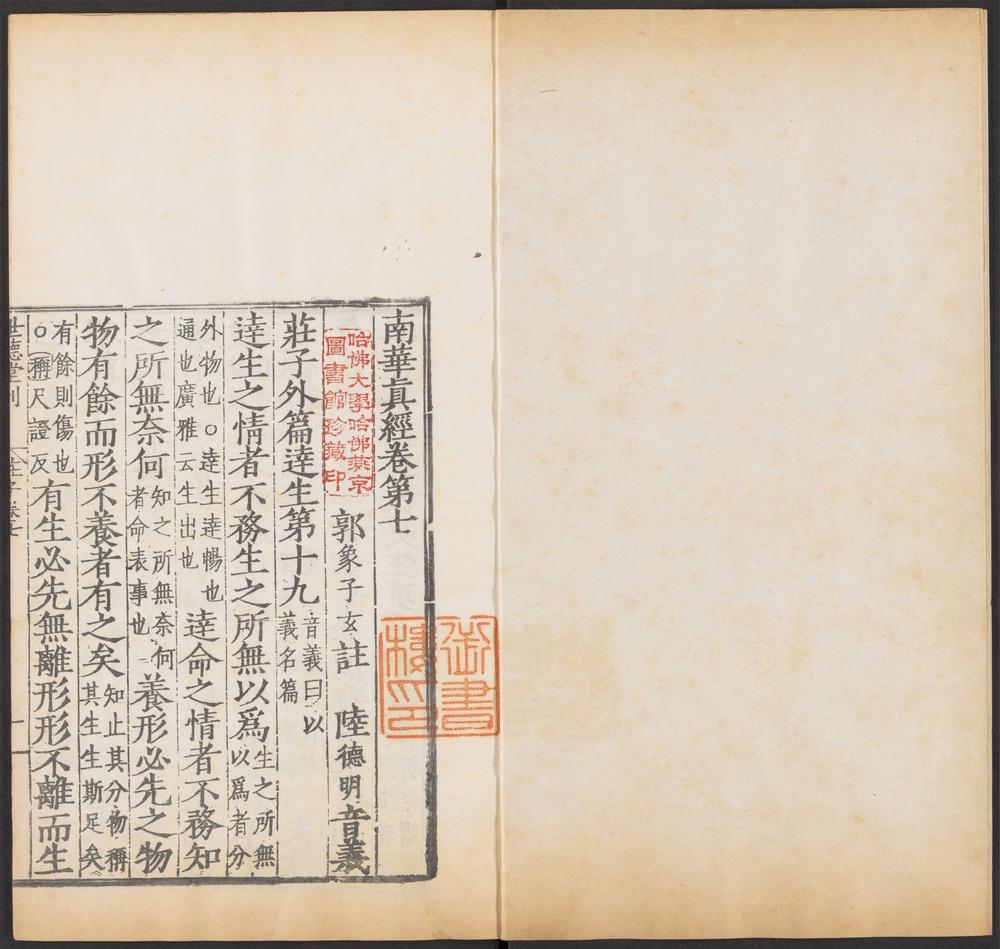 南華真經卷第七
郭象子玄註 陸德明音義
莊子外篇達生第十九 音義曰以義名篇
達生之情者不務生之所無以為 生之所無以為者分
外物也○達生達暢也通也廣雅云生出也 達命之情者不務知
之所無奈何 知之所無奈何者命表事也 養形必先之物
物有餘而形不養者有之矣 知止其分物稱其生生斯足矣
有餘則傷也○稱尺證反 有生必先無離形形不離而生
世德堂刊
哈佛大學哈佛燕京
圖書館珍藏印
御書
樓印